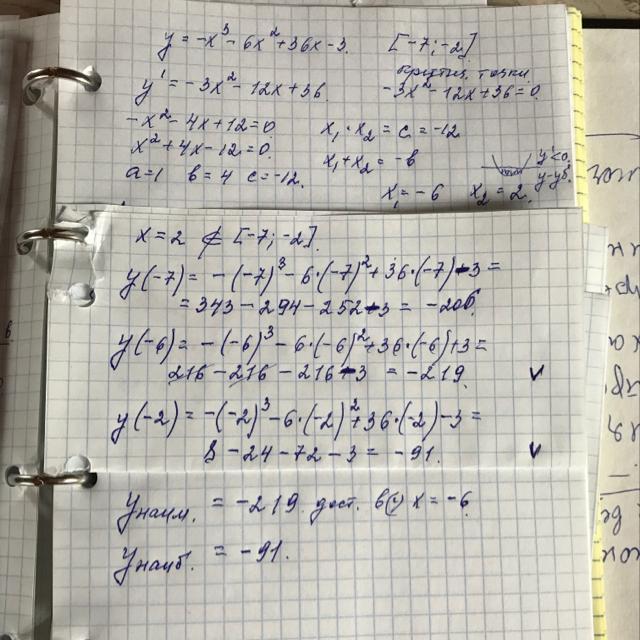 y = -x³ - 6x² + 36x - 3. [-7; -2]
y' = -3x² - 12x + 36. критич. точки
-3x² - 12x + 36 = 0.
-x² - 4x + 12 = 0 x₁ · x₂ = c = -12
x² + 4x - 12 = 0. x₁ + x₂ = -b y' < 0
a = 1 b = 4 c = -12. x₁ = -6 x₂ = 2.
x = 2 ⊄ [-7; -2].
y(-7) = -(-7)³ - 6·(-7)² + 36·(-7) - 3 =
= 343 - 294 - 252 - 3 = -206.
y(-6) = -(-6)³ - 6·(-6)² + 36·(-6) + 3 =
216 - 216 - 216 - 3 = -219. V
y(-2) = -(-2)³ - 6·(-2)² + 36·(-2) - 3 =
8 - 24 - 72 - 3 = -91. V
y наим. = -219. дост. в (·) x = -6
y наиб. = -91.